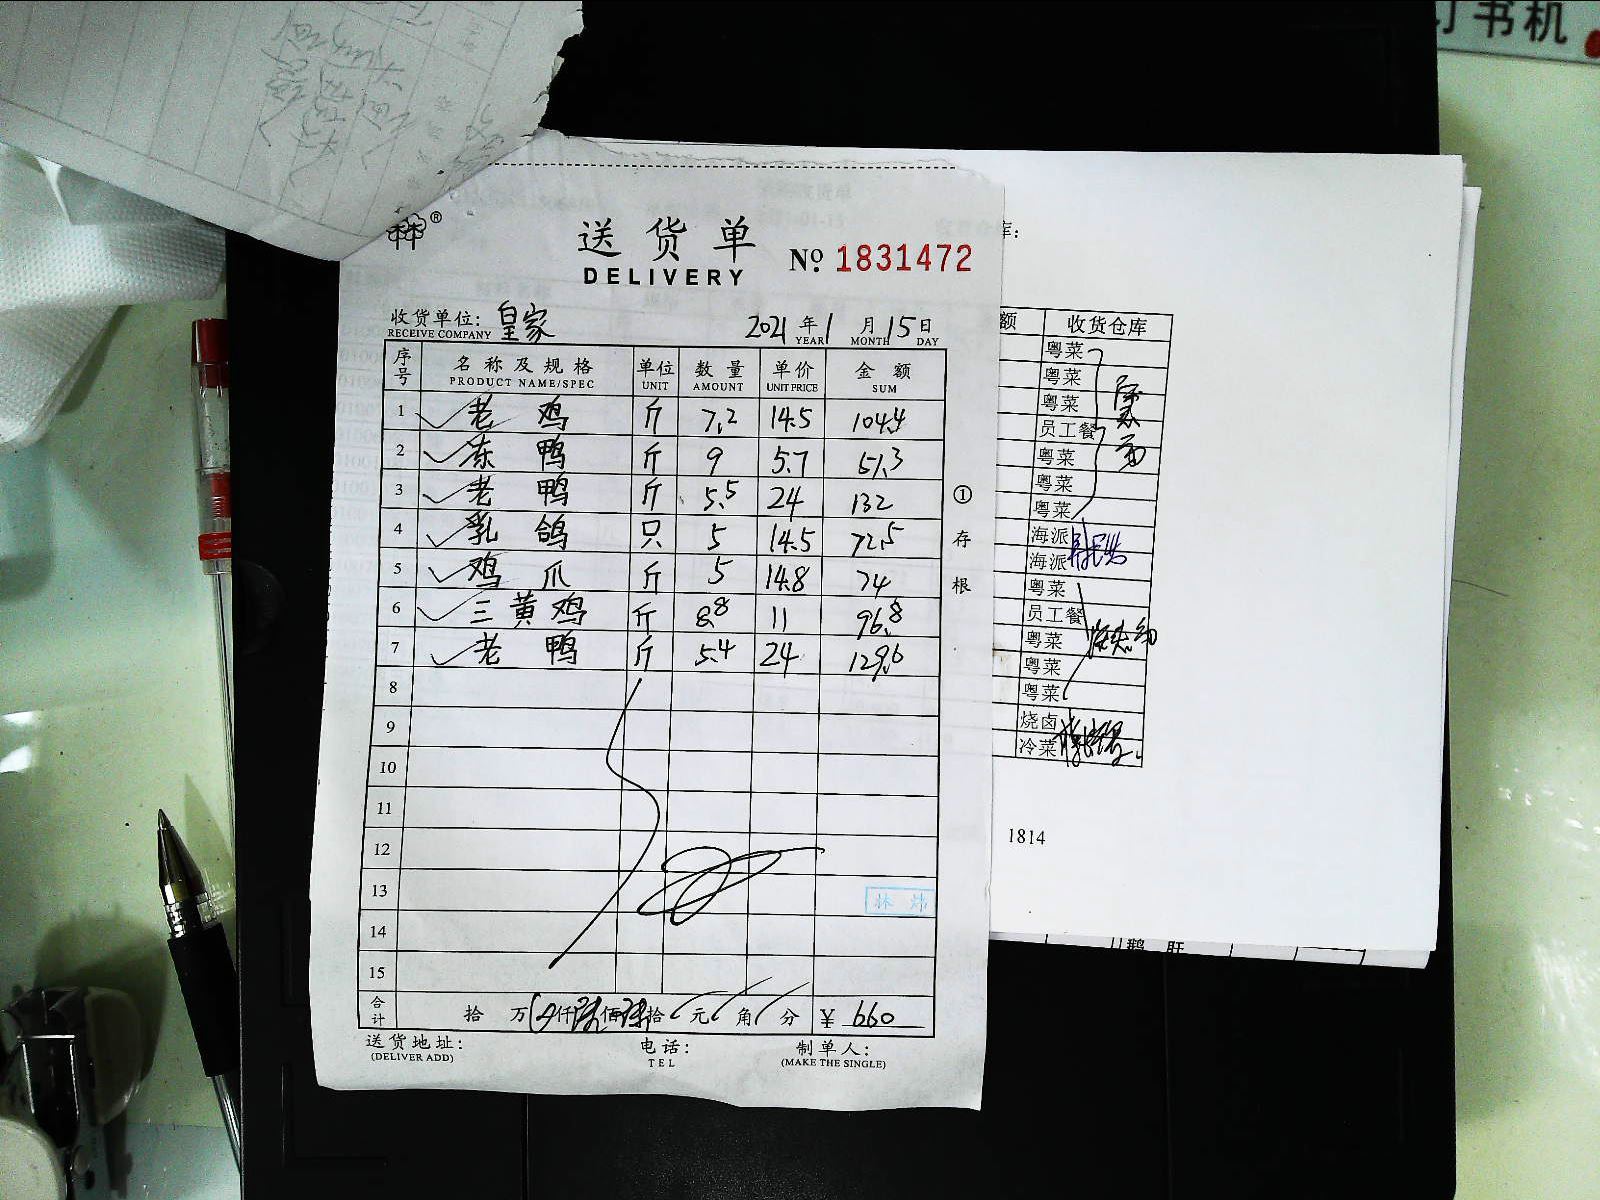 订书机
林®
送货单
DELIVERY
No 1831472
收货单位: 皇家
RECEIVE COMPANY
2021 年 1 月 15 日
YEAR MONTH DAY
序号 名称及规格 单位 数量 单价 金额
PRODUCT NAME/SPEC UNIT AMOUNT UNIT PRICE SUM
1 老鸡 斤 7.2 14.5 104.4
2 冻鸭 斤 9 5.7 51.3
3 老鸭 斤 5.5 24 132
4 乳鸽 只 5 14.5 72.5
5 鸡爪 斤 5 14.8 74
6 三黄鸡 斤 8.8 11 96.8
7 老鸭 斤 5.4 24 129.6
8
9
10
11
12
13
14
15
合计 拾 万 仟 佰 拾 元 角 分 ¥ 660
送货地址: 电话: 制单人:
(DELIVER ADD) TEL (MAKE THE SINGLE)
① 存根
库:
额 收货仓库
粤菜
粤菜
粤菜
员工餐
粤菜
粤菜
粤菜
海派
海派
粤菜
员工餐
粤菜
粤菜
粤菜
烧卤
冷菜
1814
鹅肝